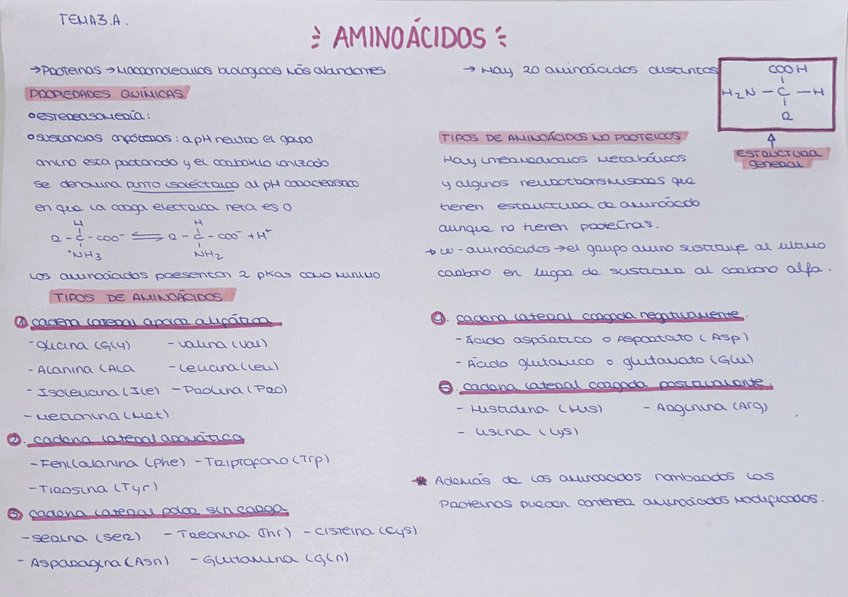 TEMA3.A.
AMINOÁCIDOS
→Proteinas → Macromoleculas biologicas más abundantes
PROPIEDADES QUÍMICAS
estereoisomería:
sustancias anfóteras: a pH neutro el grupo
amino esta protonado y el carboxilo ionizado
se denomina punto isoeléctrico al pH característico
en que la carga electrica neta es 0
H H
R - C - COO⁻ ⇌ R - C - COO⁻ + H⁺
⁺NH₃ NH₂
Los aminoácidos presentan 2 pkas como minimo
TIPOS DE AMINOÁCIDOS
1. cadena lateral apolar alifática
- Glicina (Gly) - Valina (Val)
- Alanina (Ala - Leucina (Leu)
- Isoleucina (Ile) - Prolina (Pro)
- Metionina (Met)
2. cadena lateral aromática
- Fenilalanina (Phe) - Triptofano (Trp)
- Tirosina (Tyr)
3. cadena lateral polar sin carga
- Serina (Ser) - Treonina (Thr) - Cisteina (Cys)
- Asparagina (Asn) - Glutamina (Gln)
→ Hay 20 aminoácidos distintos
COOH
H₂N - C - H
R
ESTRUCTURA
general
TIPOS DE AMINOÁCIDOS NO PROTEICOS
Hay intermediarios metabólicos
y algunos neurotransmisores que
tienen estructura de aminoácido
aunque no tienen proteínas.
→ w-aminoácidos → el grupo amino sustituye al ultimo
carbono en lugar de sustituir al carbono alfa.
4. cadena lateral cargada negativamente.
- Ácido aspártico o Aspartato (Asp)
- Ácido glutamico o glutamato (Glu)
5. cadena lateral cargada positivamente.
- Histidina (His) - Arginina (Arg)
- Lisina (Lys)
* Además de los aminoacidos nombrados las
Proteinas pueden contener aminoácidos modificados.